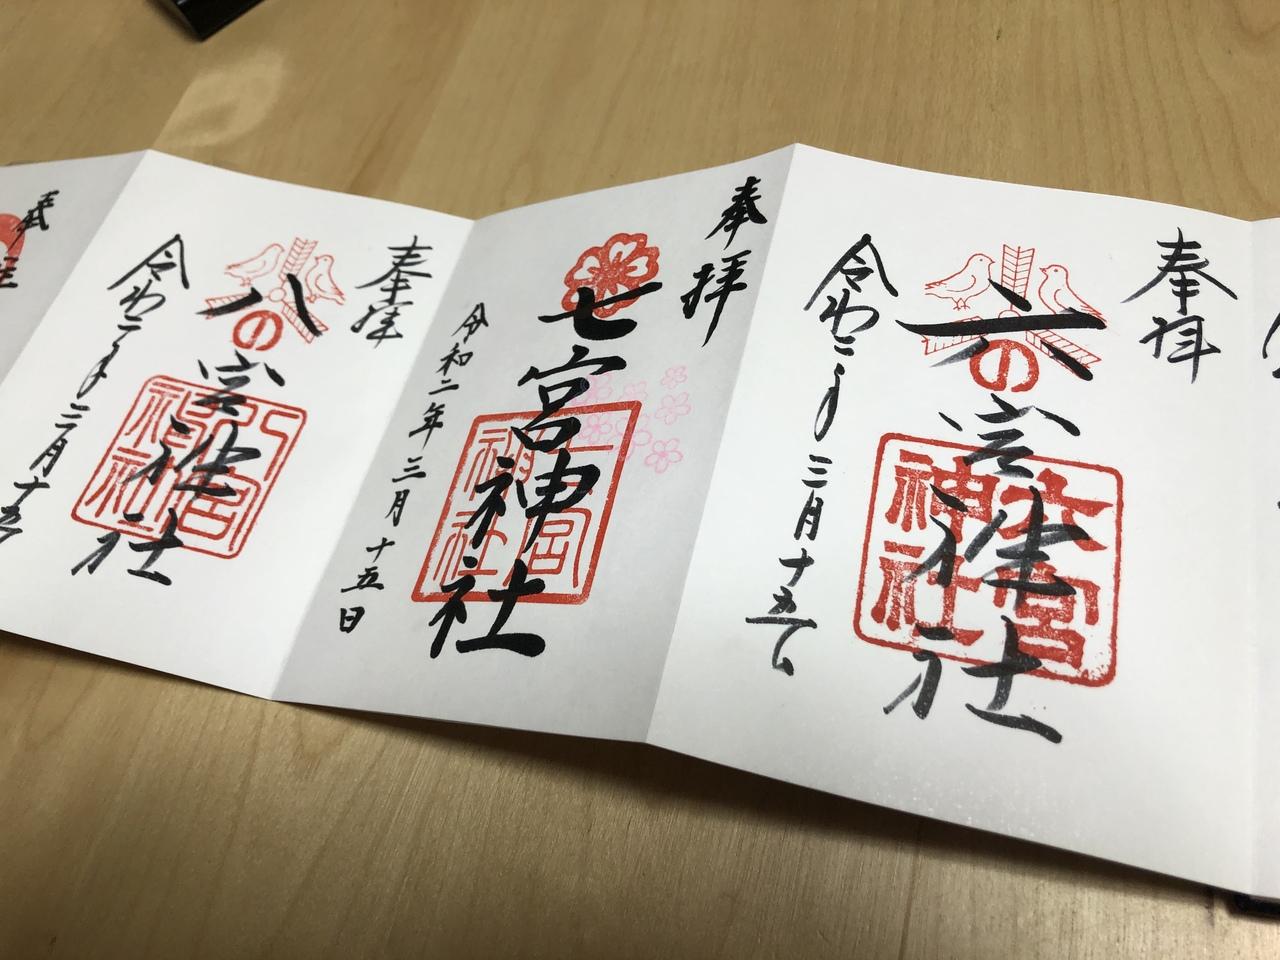 奉拝
六の宮神社
六宮神社
令和二年三月十五日
奉拝
七宮神社
七宮神社
令和二年三月十五日
奉拝
八の宮神社
八宮神社
令和二年三月十五
奉拝